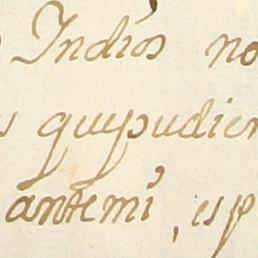 Indios no
s quepudier
antemi, esp